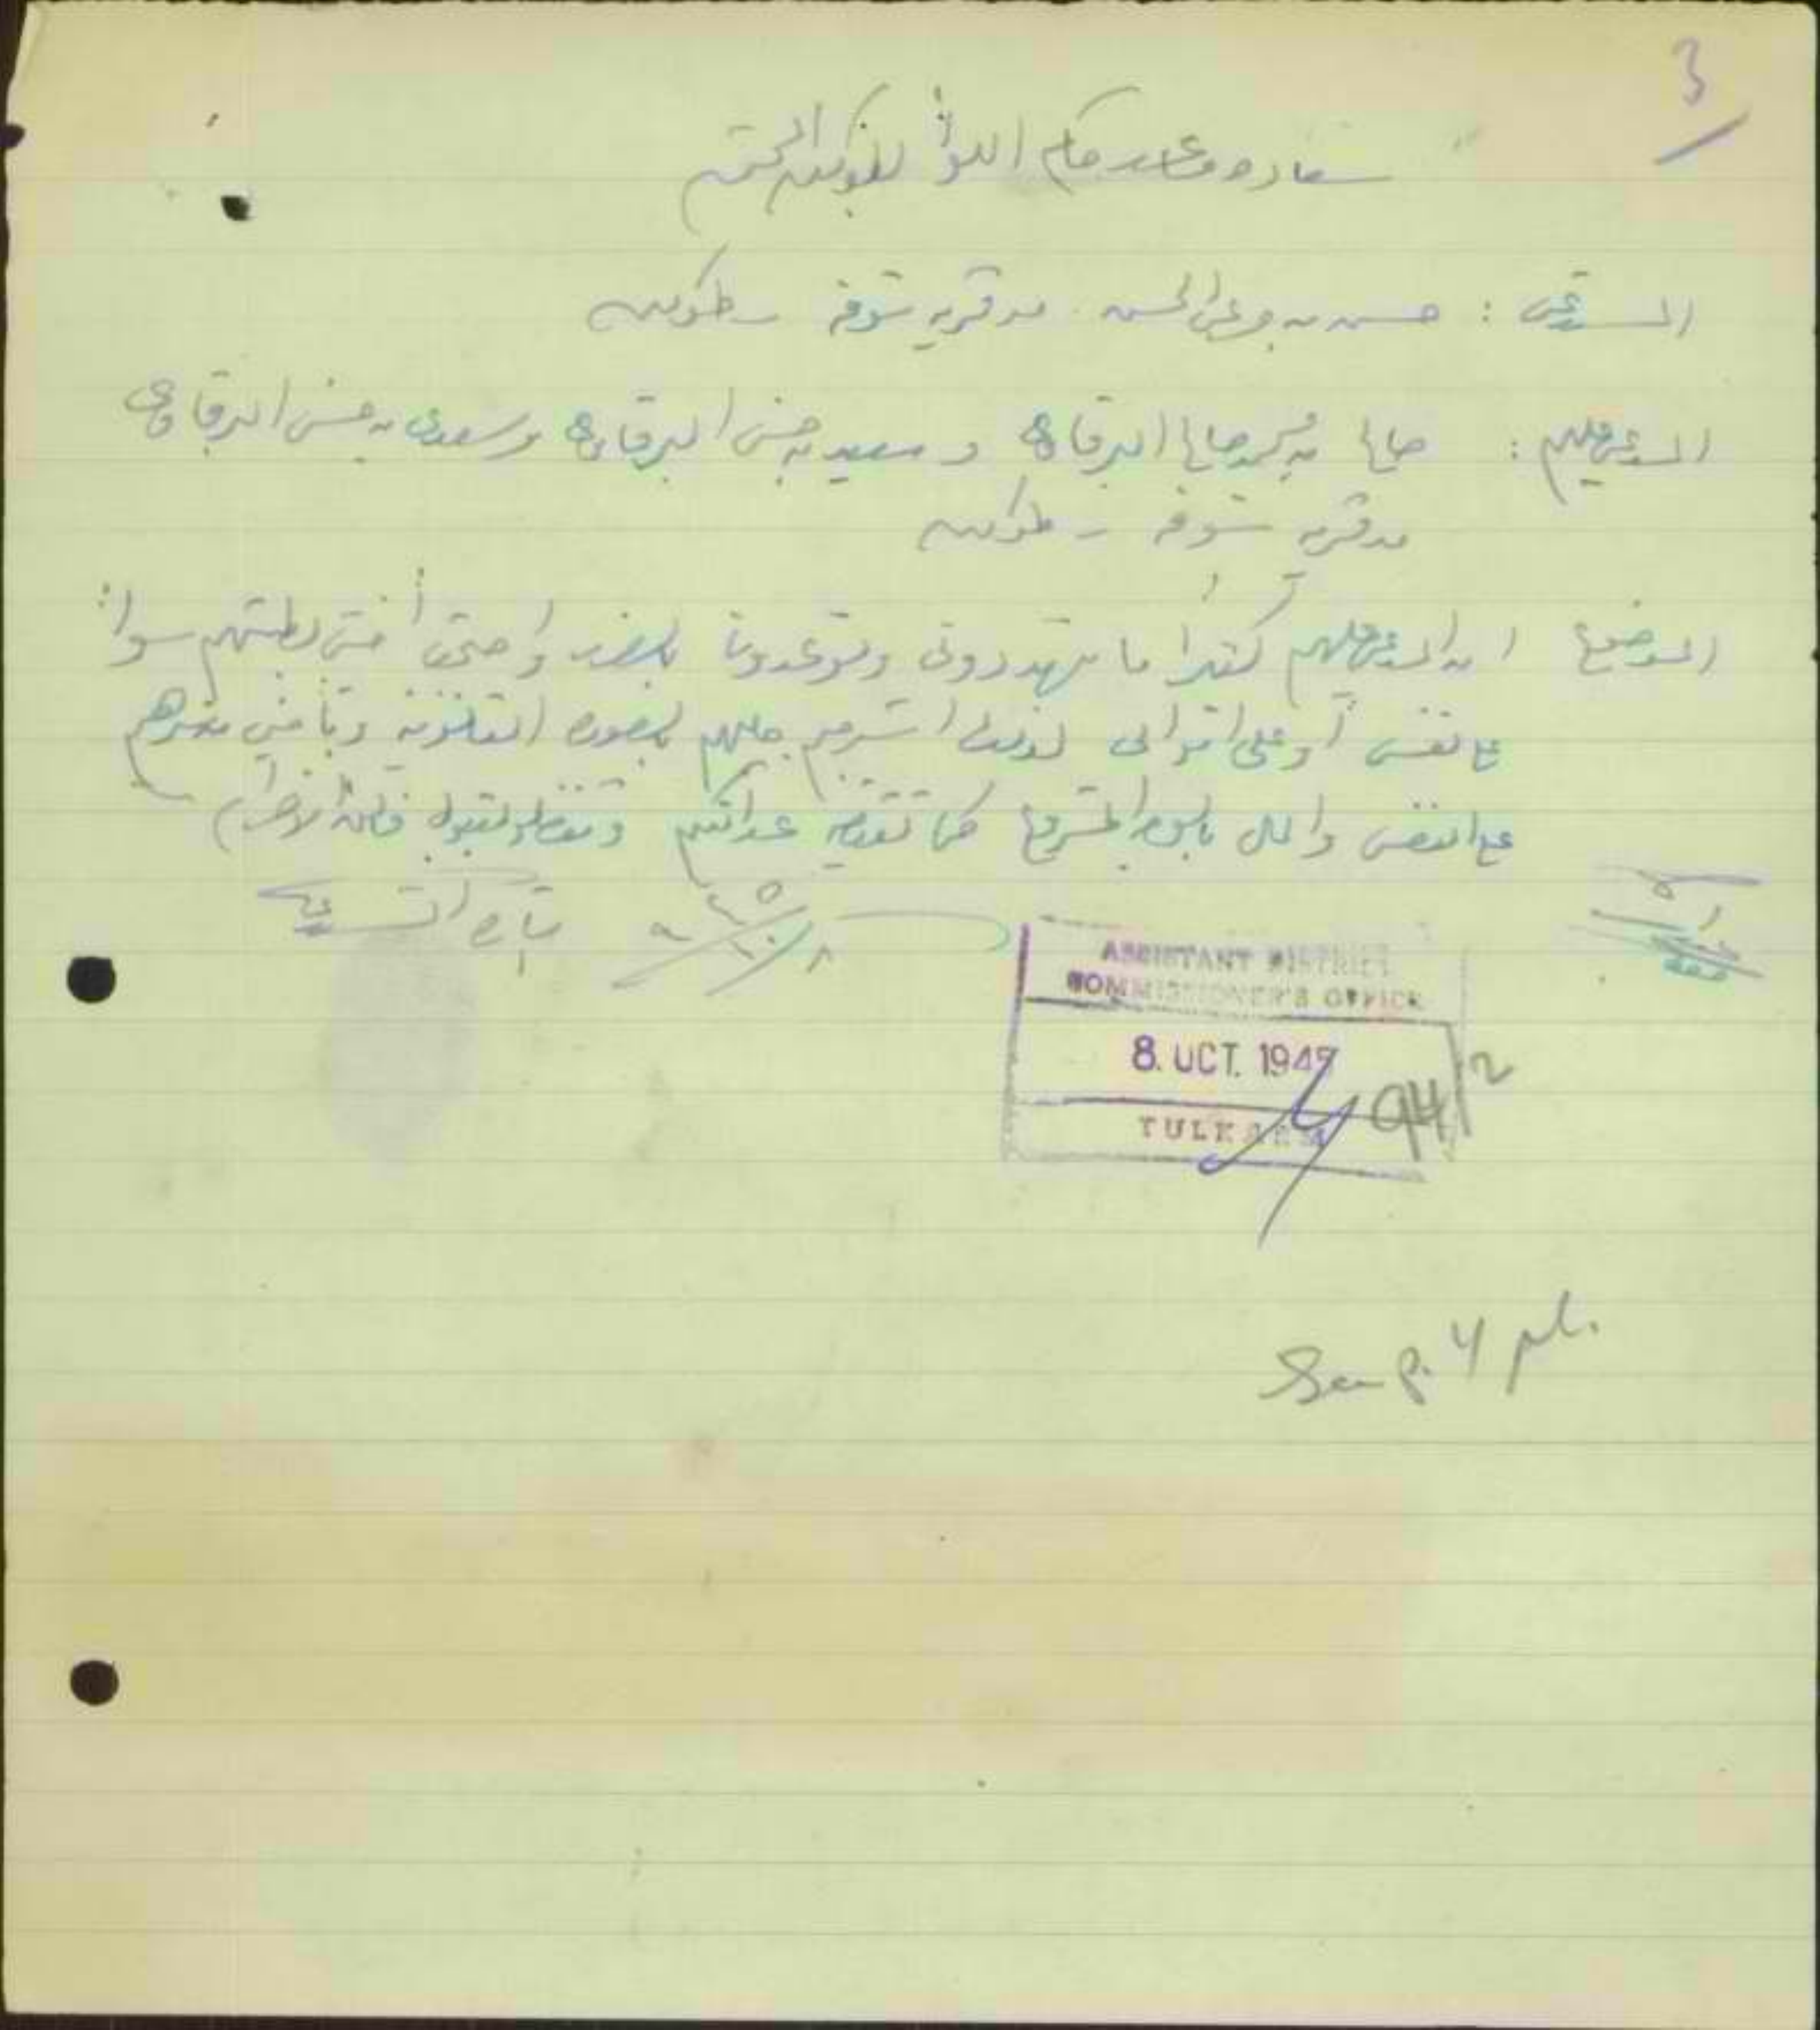 3
سعادة مساعد حاكم اللواء بطولكرم المحترم
المستدعي : حسن بن الحسن من قرية شوفة - طولكرم
المستدعى عليهم : صالح بن محمد صالح البرقاوي و سعيد بن حسن البرقاوي و سعدي بن حسن البرقاوي
من قرية شوفة - طولكرم
الموضوع ان المستدعى عليهم كثيرا ما يتهددوني ويتوعدونا بالضرر واصبحت أخشى بطشهم سواء
على نفسي أو على اموالي لذلك استرحم جلبهم بالصورة القانونية وتأميني من شرهم
على النفس والمال بالصورة المشروعة كما تقتضيه عدالتكم وتفضلوا بقبول فائق الاحترام
٨/١٠/٤٥
المستدعي
ASSISTANT DISTRICT
COMMISSIONER'S OFFICE
8. OCT. 1945
TULKARM
94/2
See p. 4 pl.